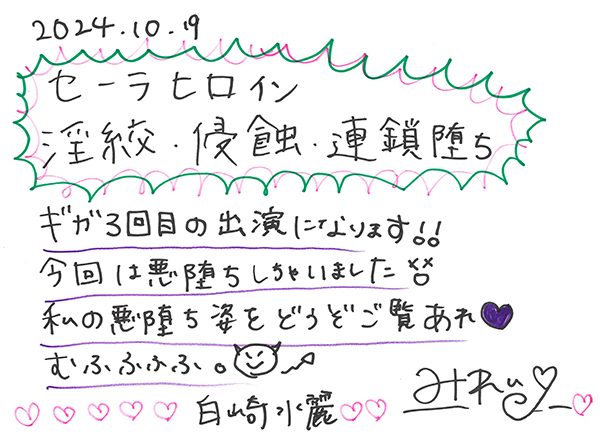 2024.10.19
セーラヒロイン
淫絞・侵蝕・連鎖堕ち
ギガ3回目の出演になります!!
今回は悪堕ちしちゃいました
私の悪堕ち姿をどうぞご覧あれ
むふふふふ。
白崎水麗